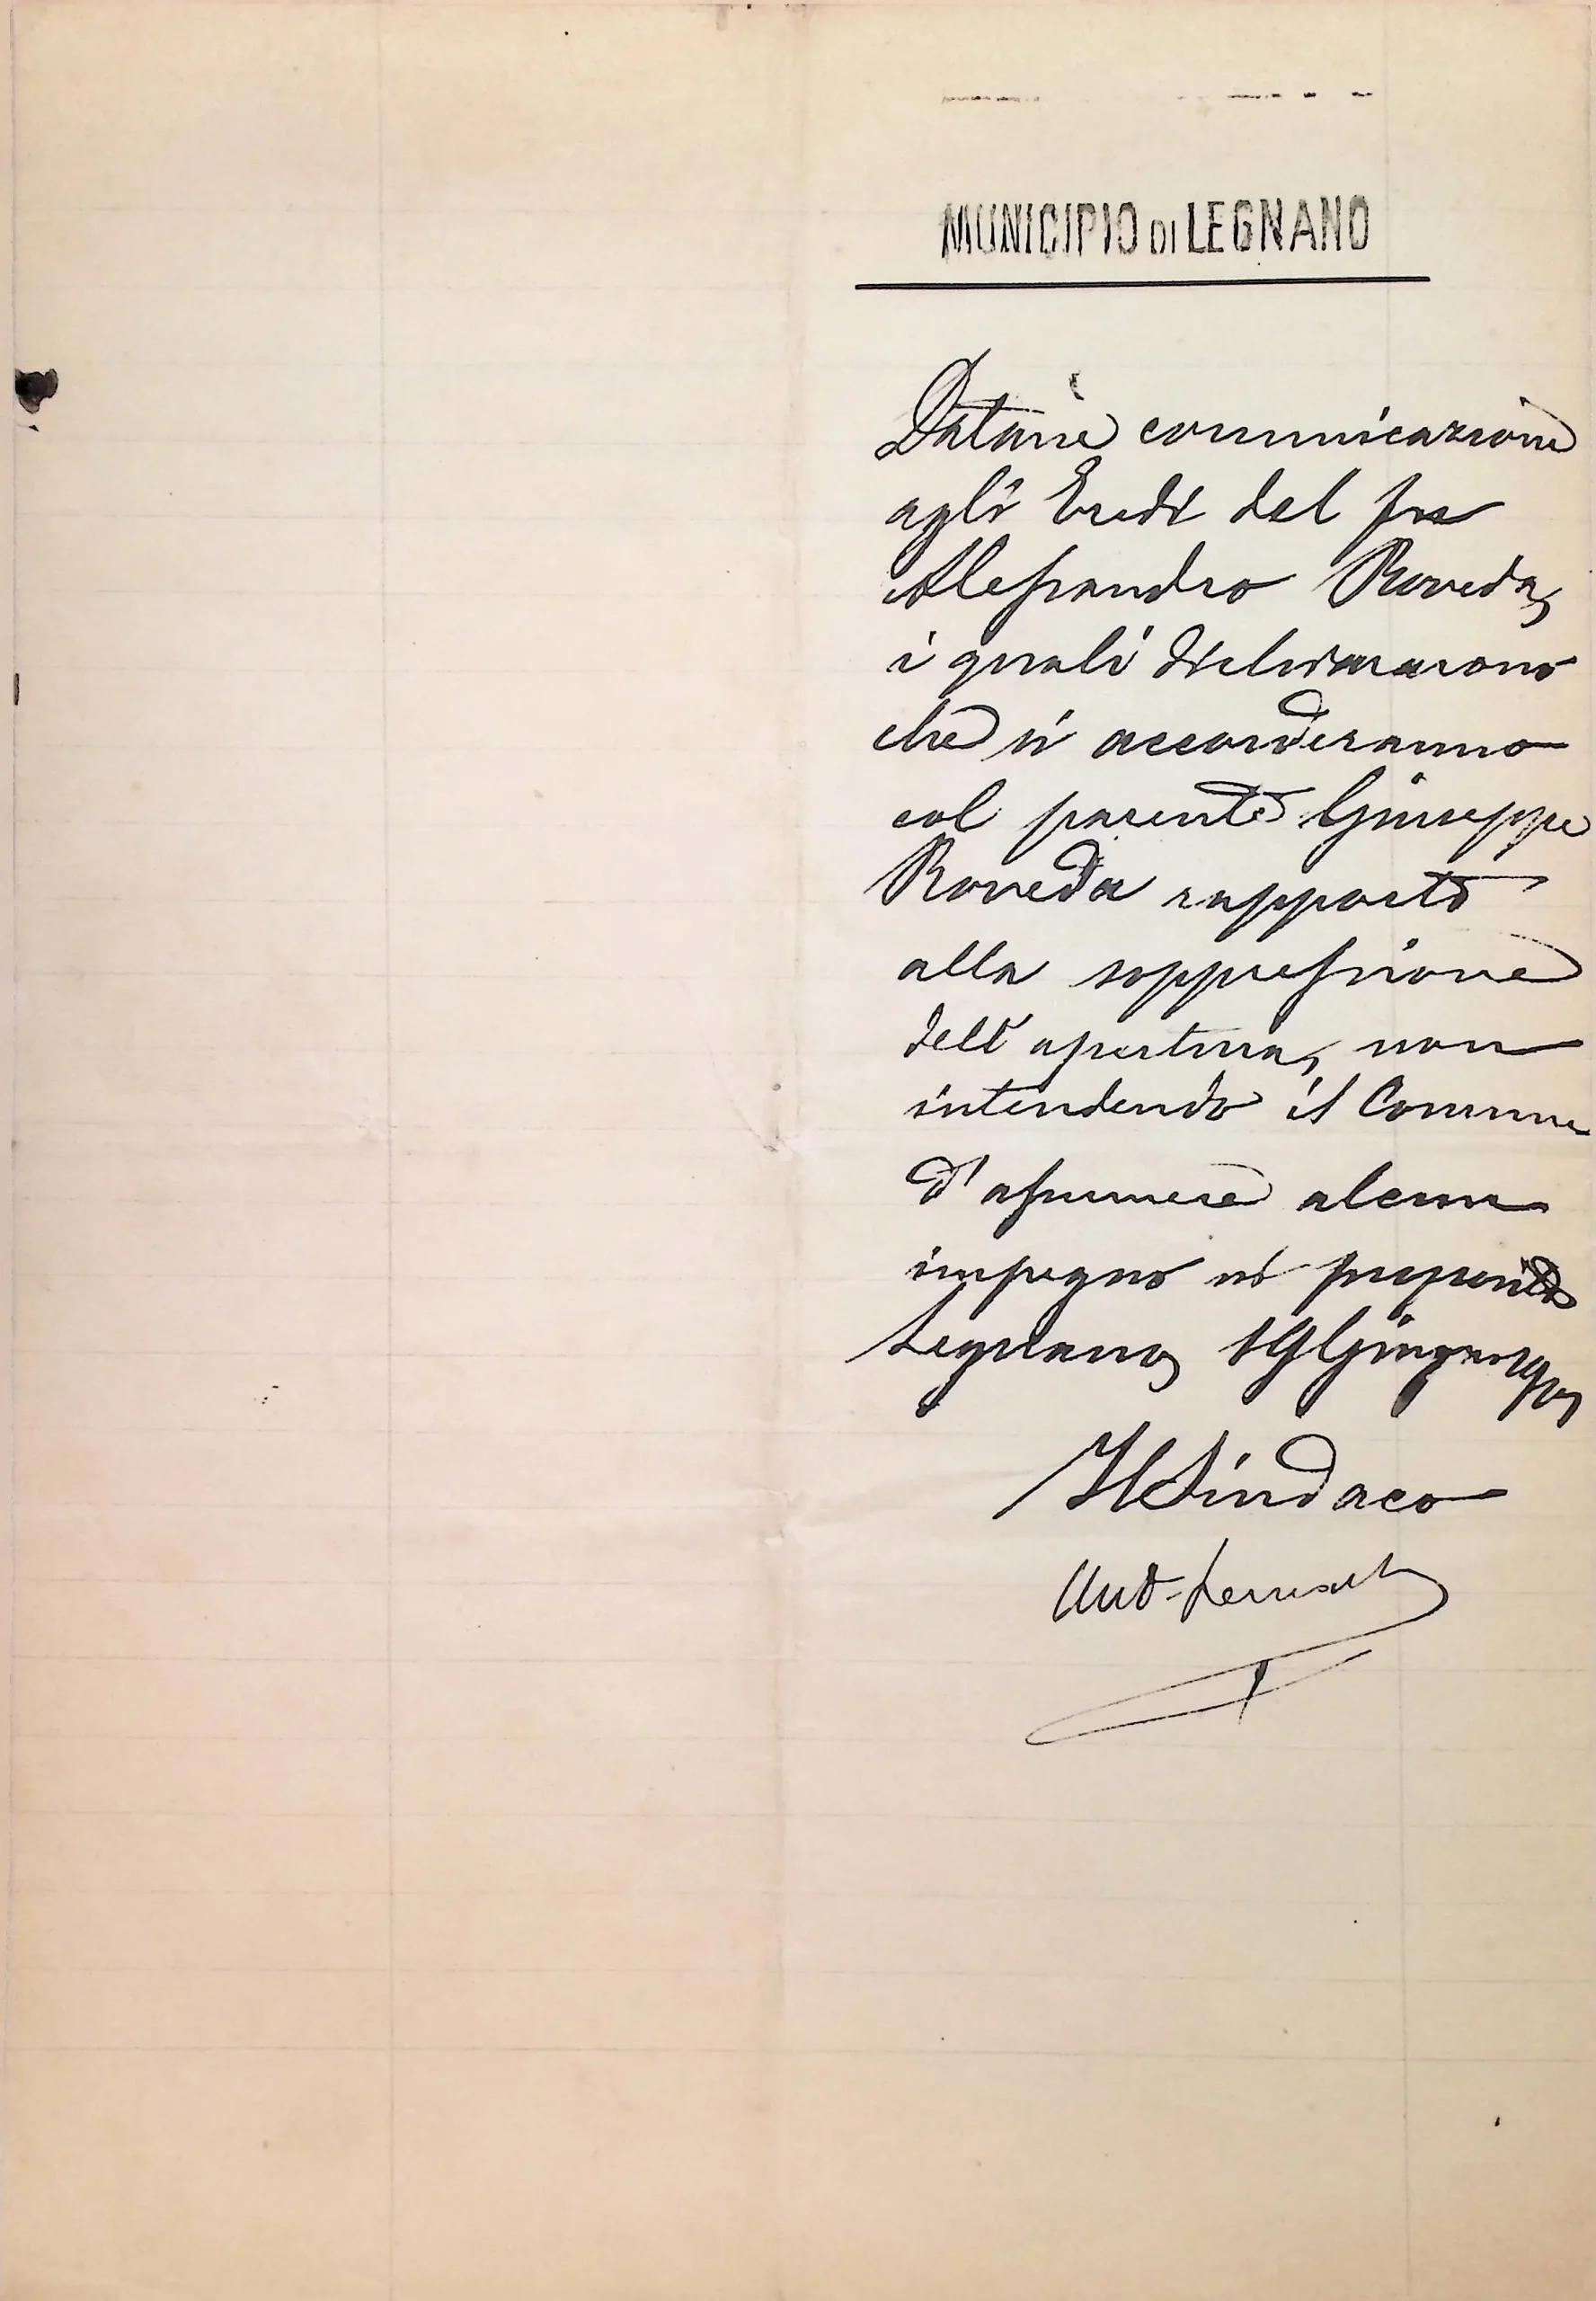 MUNICIPIO DI LEGNANO
Datane comunicazione
agli Eredi del fu
Alessandro Roveda,
i quali dichiararono
che si accorderanno
col parente Giuseppe
Roveda rapporto
alla soppressione
dell'apertura, non
intendendo il Comune
d'assumere alcun
impegno in proposito
Legnano, Giugno
Il Sindaco
Ant.